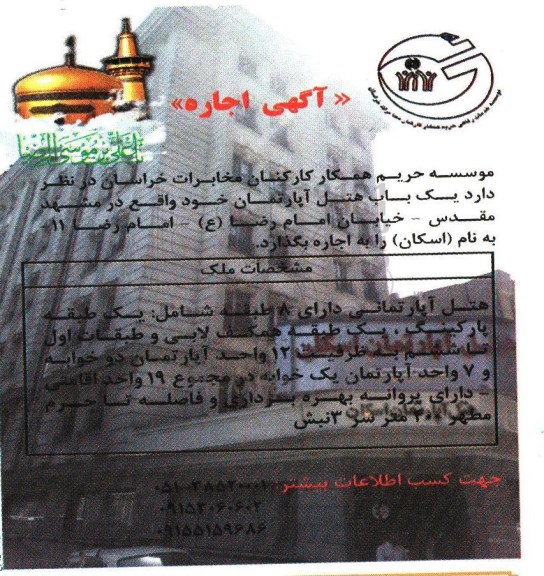 « آگهی اجاره»
یا علی بن موسی الرضا
موسسه حریم همکار کارکنان مخابرات خراسان در نظر
دارد یک باب هتل آپارتمان خود واقع در مشهد
مقدس - خیابان امام رضا (ع) - امام رضا ۱۱-
به نام (اسکان) را به اجاره بگذارد.
مشخصات ملک
هتل آپارتمانی دارای ۸ طبقه شامل: یک طبقه
پارکینگ ، یک طبقه همکف لابی و طبقات اول
تا ششم به ظرفیت ۱۲ واحد آپارتمان دو خوابه
و ۷ واحد آپارتمان یک خوابه در مجموع ۱۹ واحد اقامتی
- دارای پروانه بهره برداری و فاصله تا حرم
مطهر ۲۰۰ متر سر ۳نبش
جهت کسب اطلاعات بیشتر:
۰۹۱۵۳۰۶۰۶۰۲
۰۹۱۵۵۱۵۹۶۸۶